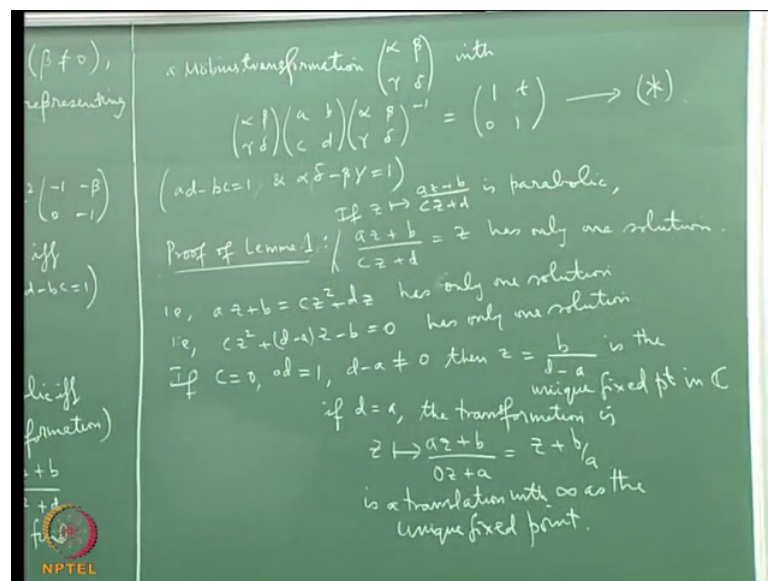 (β ≠ 0),
representing
² (-1 -β
0 -1)
iff
d-bc=1)
lic iff
formation)
z+b
z+d
a Möbius transformation (α β
γ δ) with
(α β
γ δ) (a b
c d) (α β
γ δ)⁻¹ = (1 t
0 1) ⟶ (*)
(ad-bc=1 & αδ-βγ=1)
If z ↦ az+b/cz+d is parabolic,
Proof of Lemma 1: / az+b/cz+d = z has only one solution.
ie, az+b = cz²+dz has only one solution
ie, cz²+(d-a)z-b=0 has only one solution.
If c=0, ad=1, d-a ≠ 0 then z = b/d-a is the
unique fixed pt in ℂ
if d=a, the transformation is
z ↦ az+b/0z+a = z + b/a
is a translation with ∞ as the
unique fixed point.
NPTEL